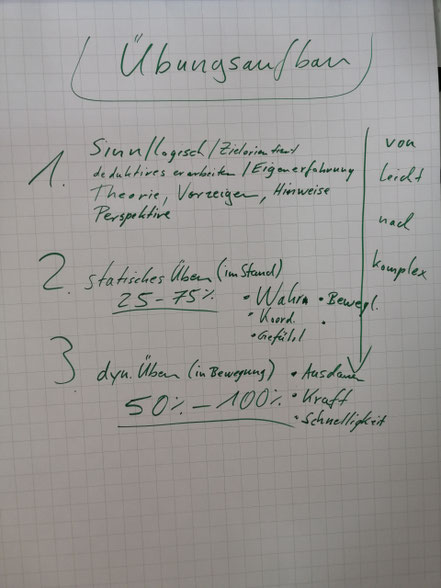 Übungsaufbau
1. Sinn/logisch/Zielorientiert
deduktives erarbeiten/Eigenerfahrung
Theorie, Vorzeigen, Hinweise
Perspektive
von
leicht
nach
komplex
2. statisches Üben (im Stand)
25-75%
• Wahrn • Bewegl.
• Koord. •
• Gefühl
3. dyn. Üben (in Bewegung)
50% - 100%
• Ausdauer
• Kraft
• Schnelligkeit